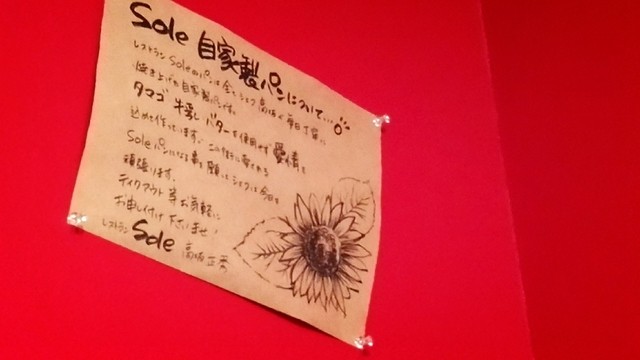 Sole 自家製パンについて…
レストラン Soleのパンは全てシェフ高坂が毎日丁寧に
焼き上げる自家製パンです。
タマゴ 牛乳 バターを使用せず 愛情を
込めて作っています。この街に愛される
Soleパンになる事を願ってシェフは今日も
頑張ります。
テイクアウト等お気軽に
お申し付け下さいませ!
レストラン Sole 高坂正秀